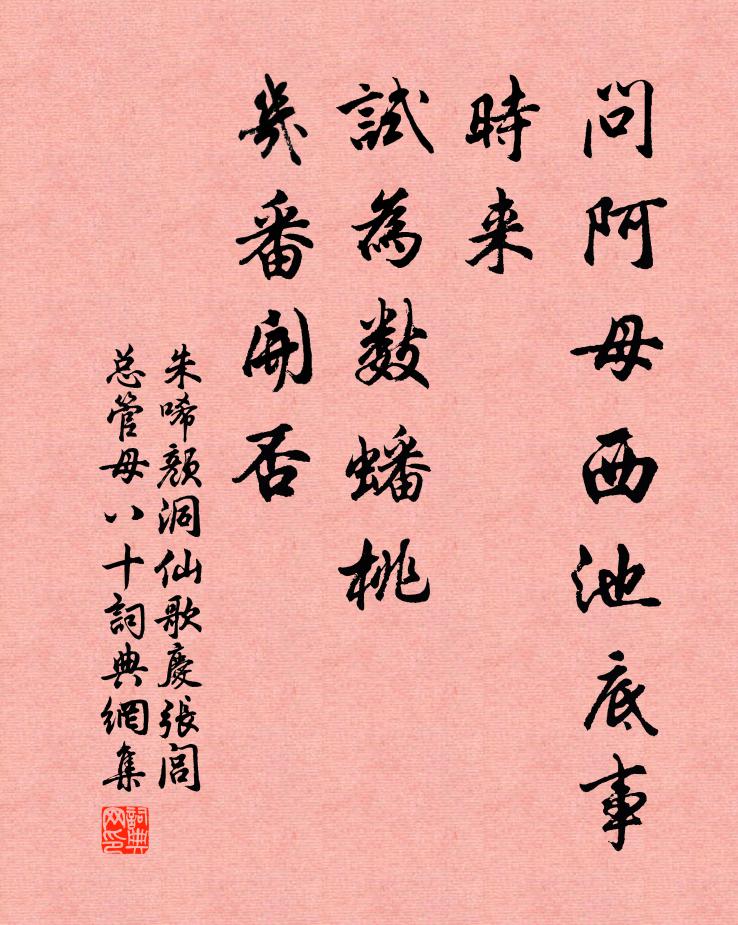 問阿母西池底事
時来
試為数蟠桃
幾番開否
朱唏顔洞仙歌慶張閭
总管母八十詞典網集
詞典网印